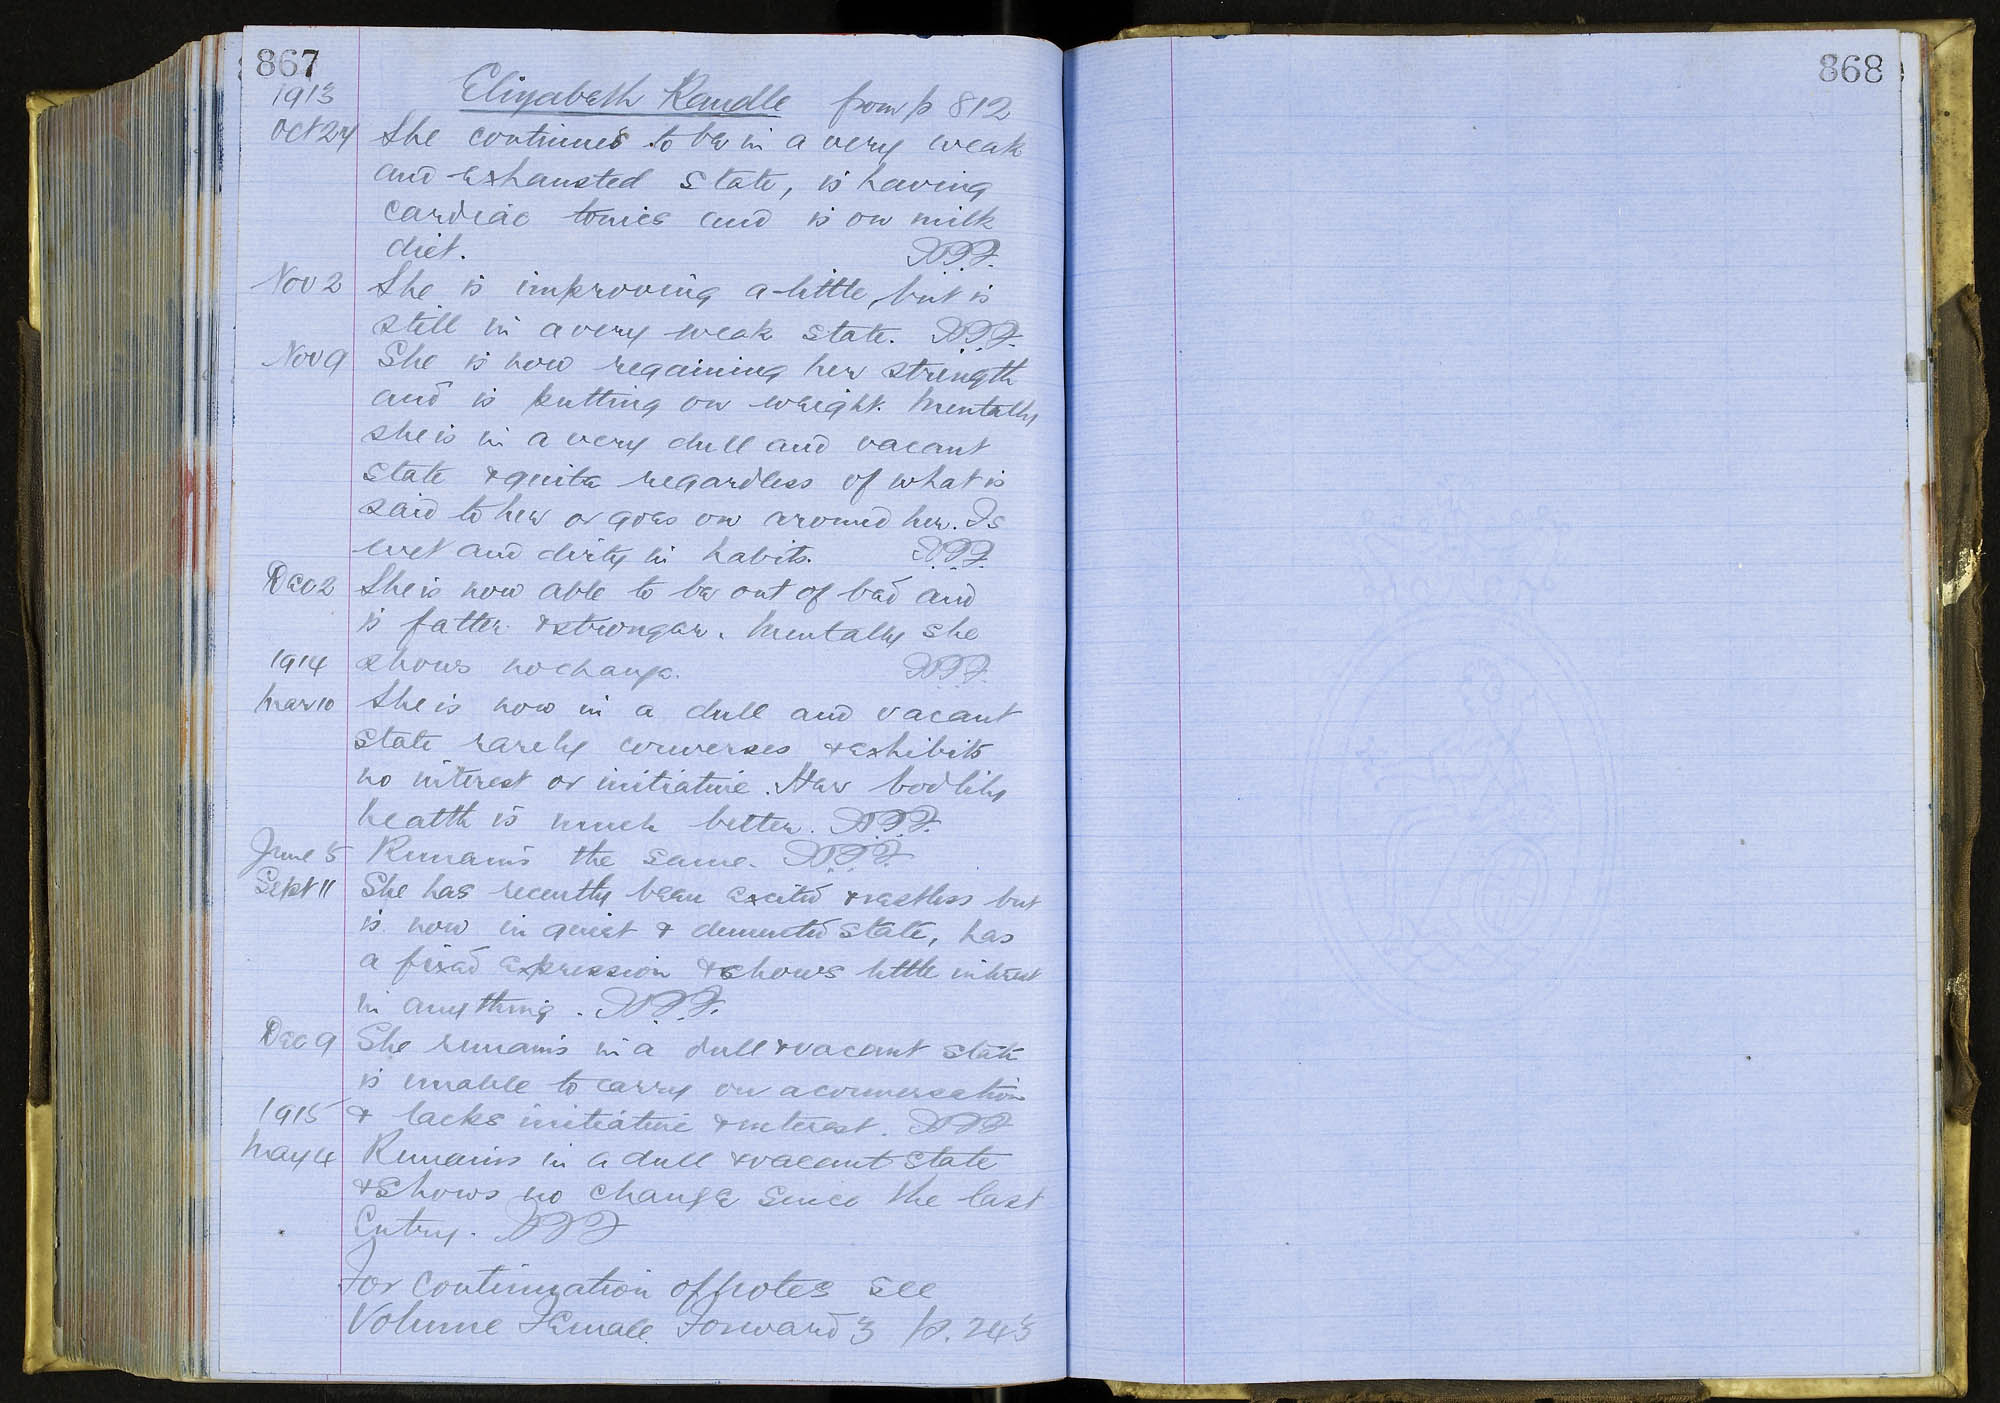 867
1913
Elizabeth Randle from p 812
Oct 24 She continues to be in a very weak
and exhausted state, is having
cardiac tonics and is on milk
diet.
Nov 2 She is improving a little, but is
still in a very weak state.
Nov 9 She is now regaining her strength
and is putting on weight. Mentally
she is in a very dull and vacant
state & quite regardless of what is
said to her or goes on around her. Is
wet and dirty in habits.
Dec 2 She is now able to be out of bed and
is fatter & stronger. Mentally she
1914 shows no change.
Mar 10 She is now in a dull and vacant
state rarely converses & exhibits
no interest or initiative. Her bodily
health is much better.
June 5 Remains the same.
Sept 11 She has recently been excited & restless but
is now in quiet & demented state, has
a fixed expression & shows little interest
in anything.
Dec 9 She remains in a dull & vacant state
is unable to carry on a conversation
1915 & lacks initiative & interest.
May 4 Remains in a dull & vacant state
& shows no change since the last
Entry.
For continuation of notes see
Volume Female Forward 3 p. 243
868